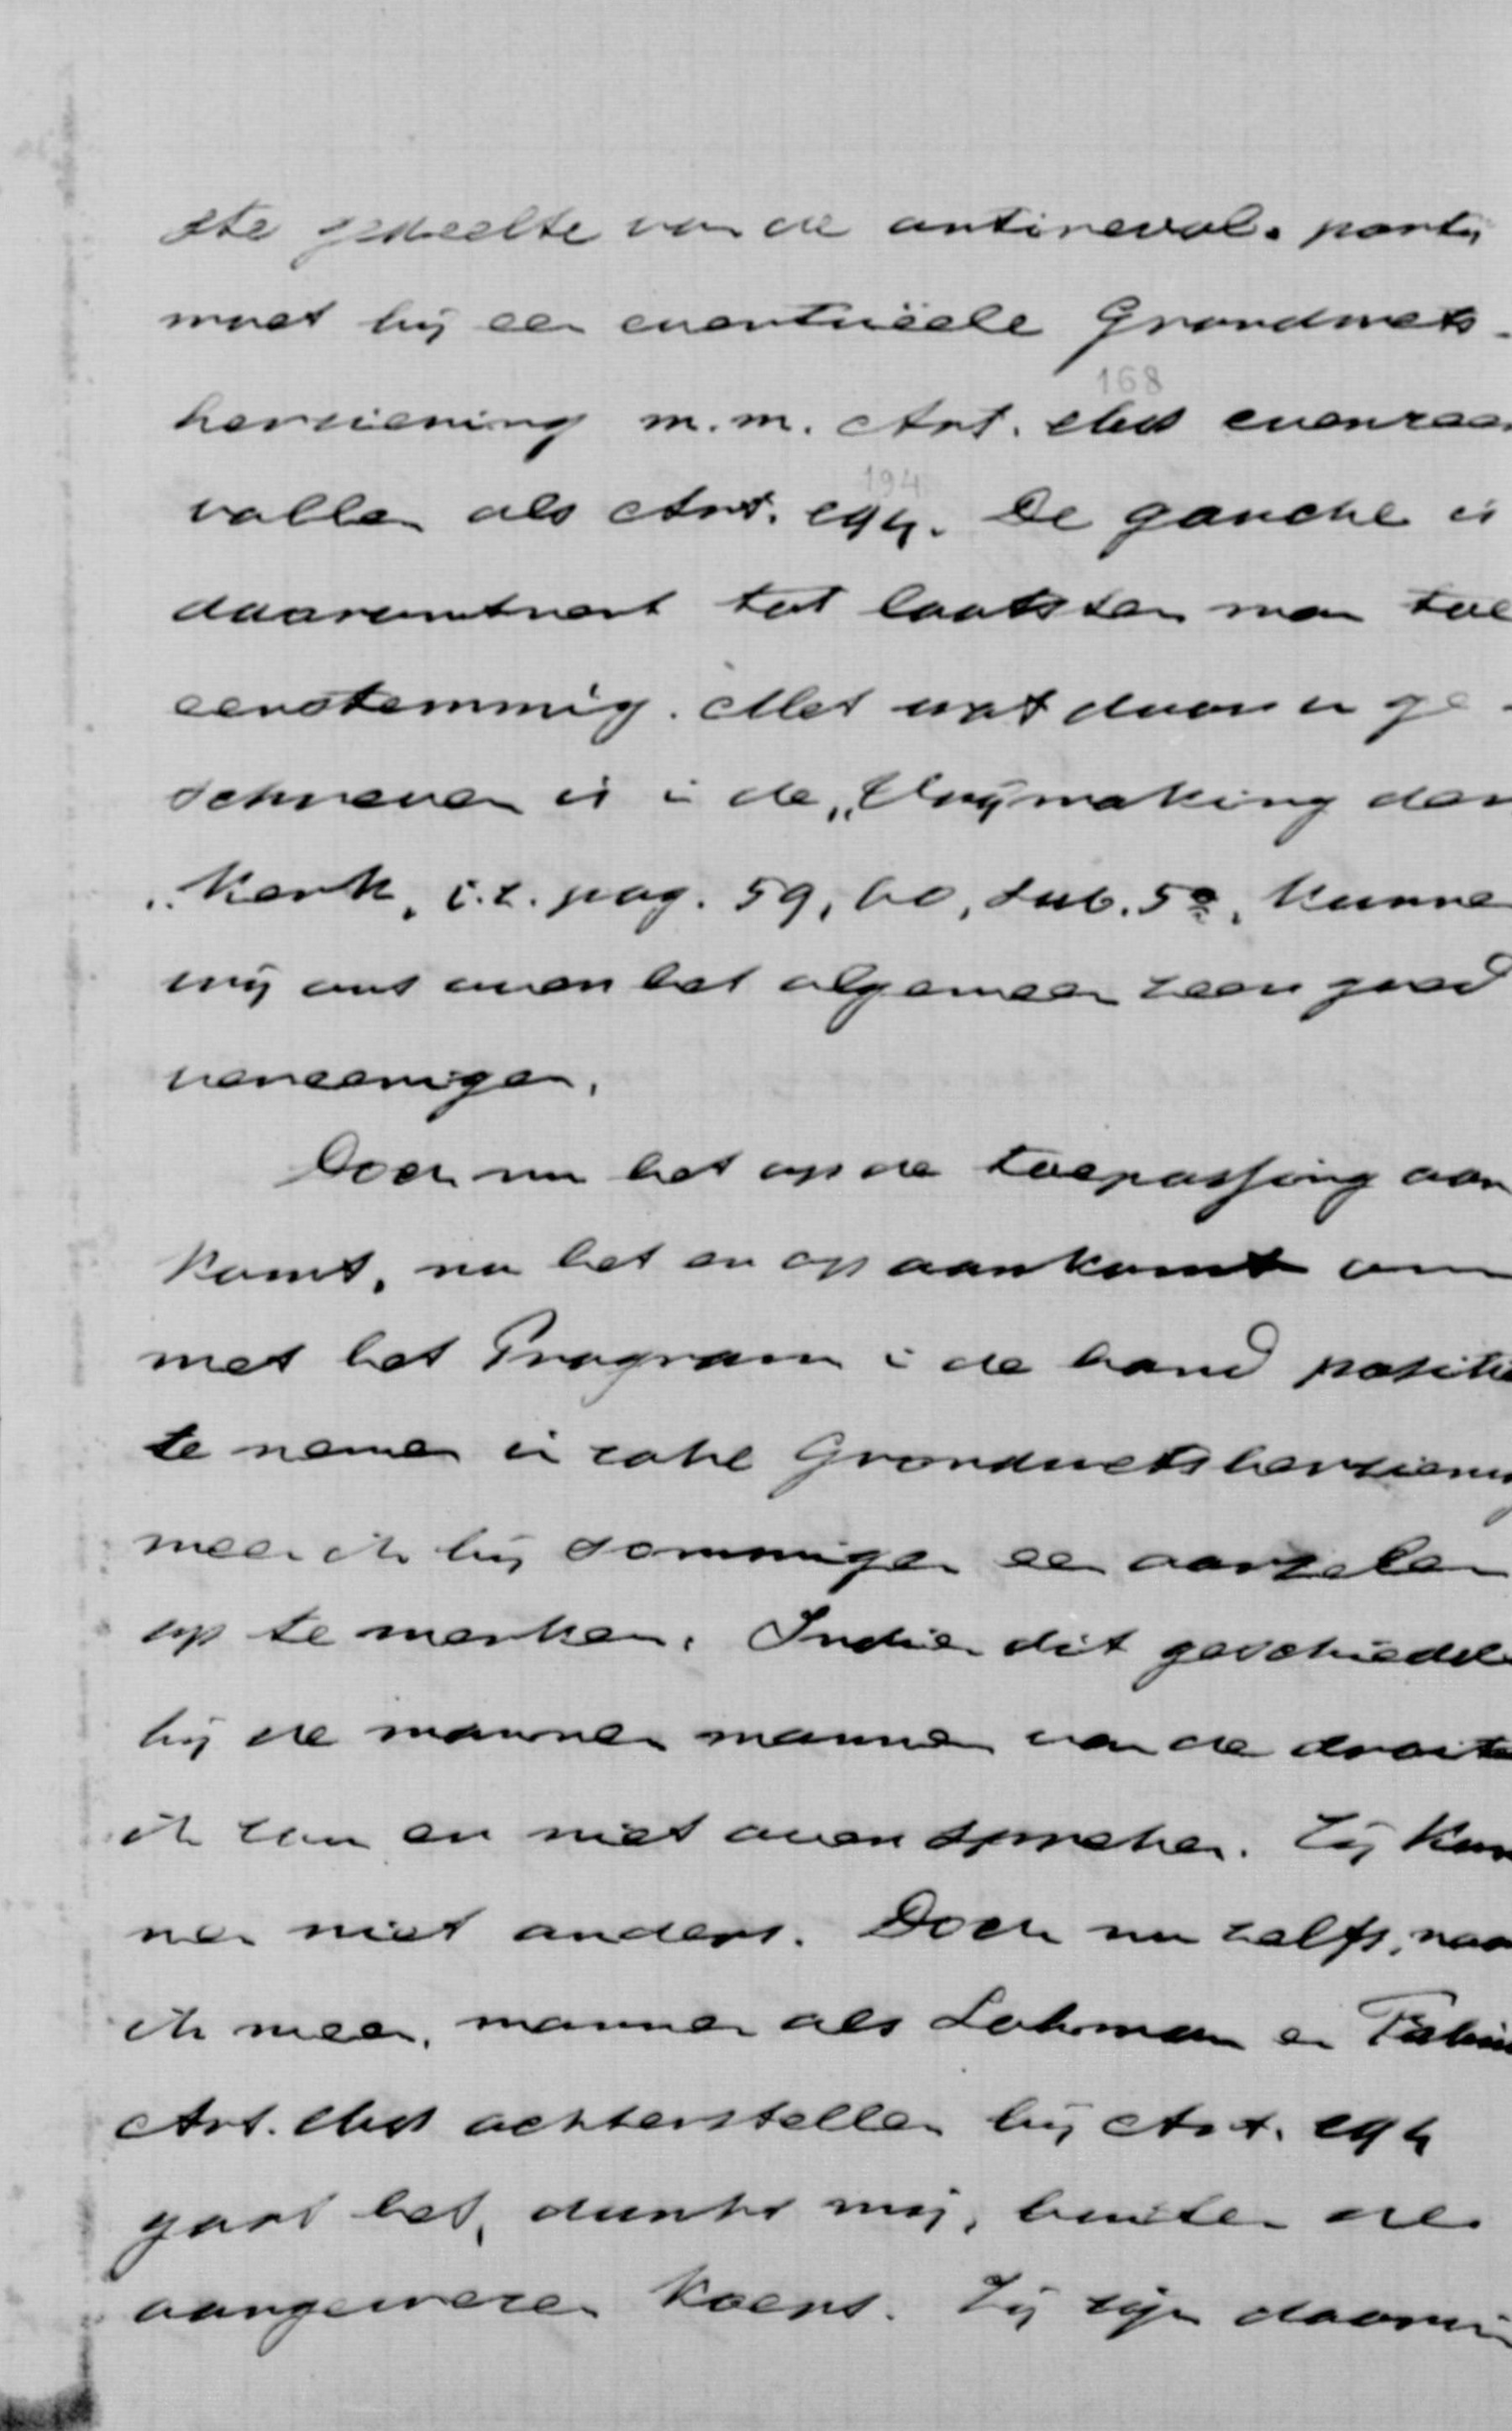 ste gedeelte van de antirevol. partij
moet bij een eventuëele Grondwets-
168
herziening m.m. Art. cbd evenzeer
194
vallen als Art. cgq. De gauche is
daaromtrent tot laatsten man toe
eenstemmig. Met wat daarin ge-
schreven is in de „Vrijmaking der
„Kerk, i.z. pag. 59, 60, sub. 5º, kunne
wij ons over het algemeen zeer goed
vereenigen.
Doch nu het op de toepassing aan
komt, nu het er op aankomt om
met het Program in de hand positie
te nemen in zake Grondwetsherziening
meen ik bij sommigen een aarzelen
op te merken. Indien dit geschiedde
bij de mannen mannen van de droite
ik zou er niet over spreken. Zij kun
nen niet anders. Doch nu zelfs, naar
ik meen, mannen als Lohman en Fabius
Art. cbd achterstellen bij Art. cgq
gaat het, dunkt mij, buiten den
aangewezen koers. Zij zijn daarin